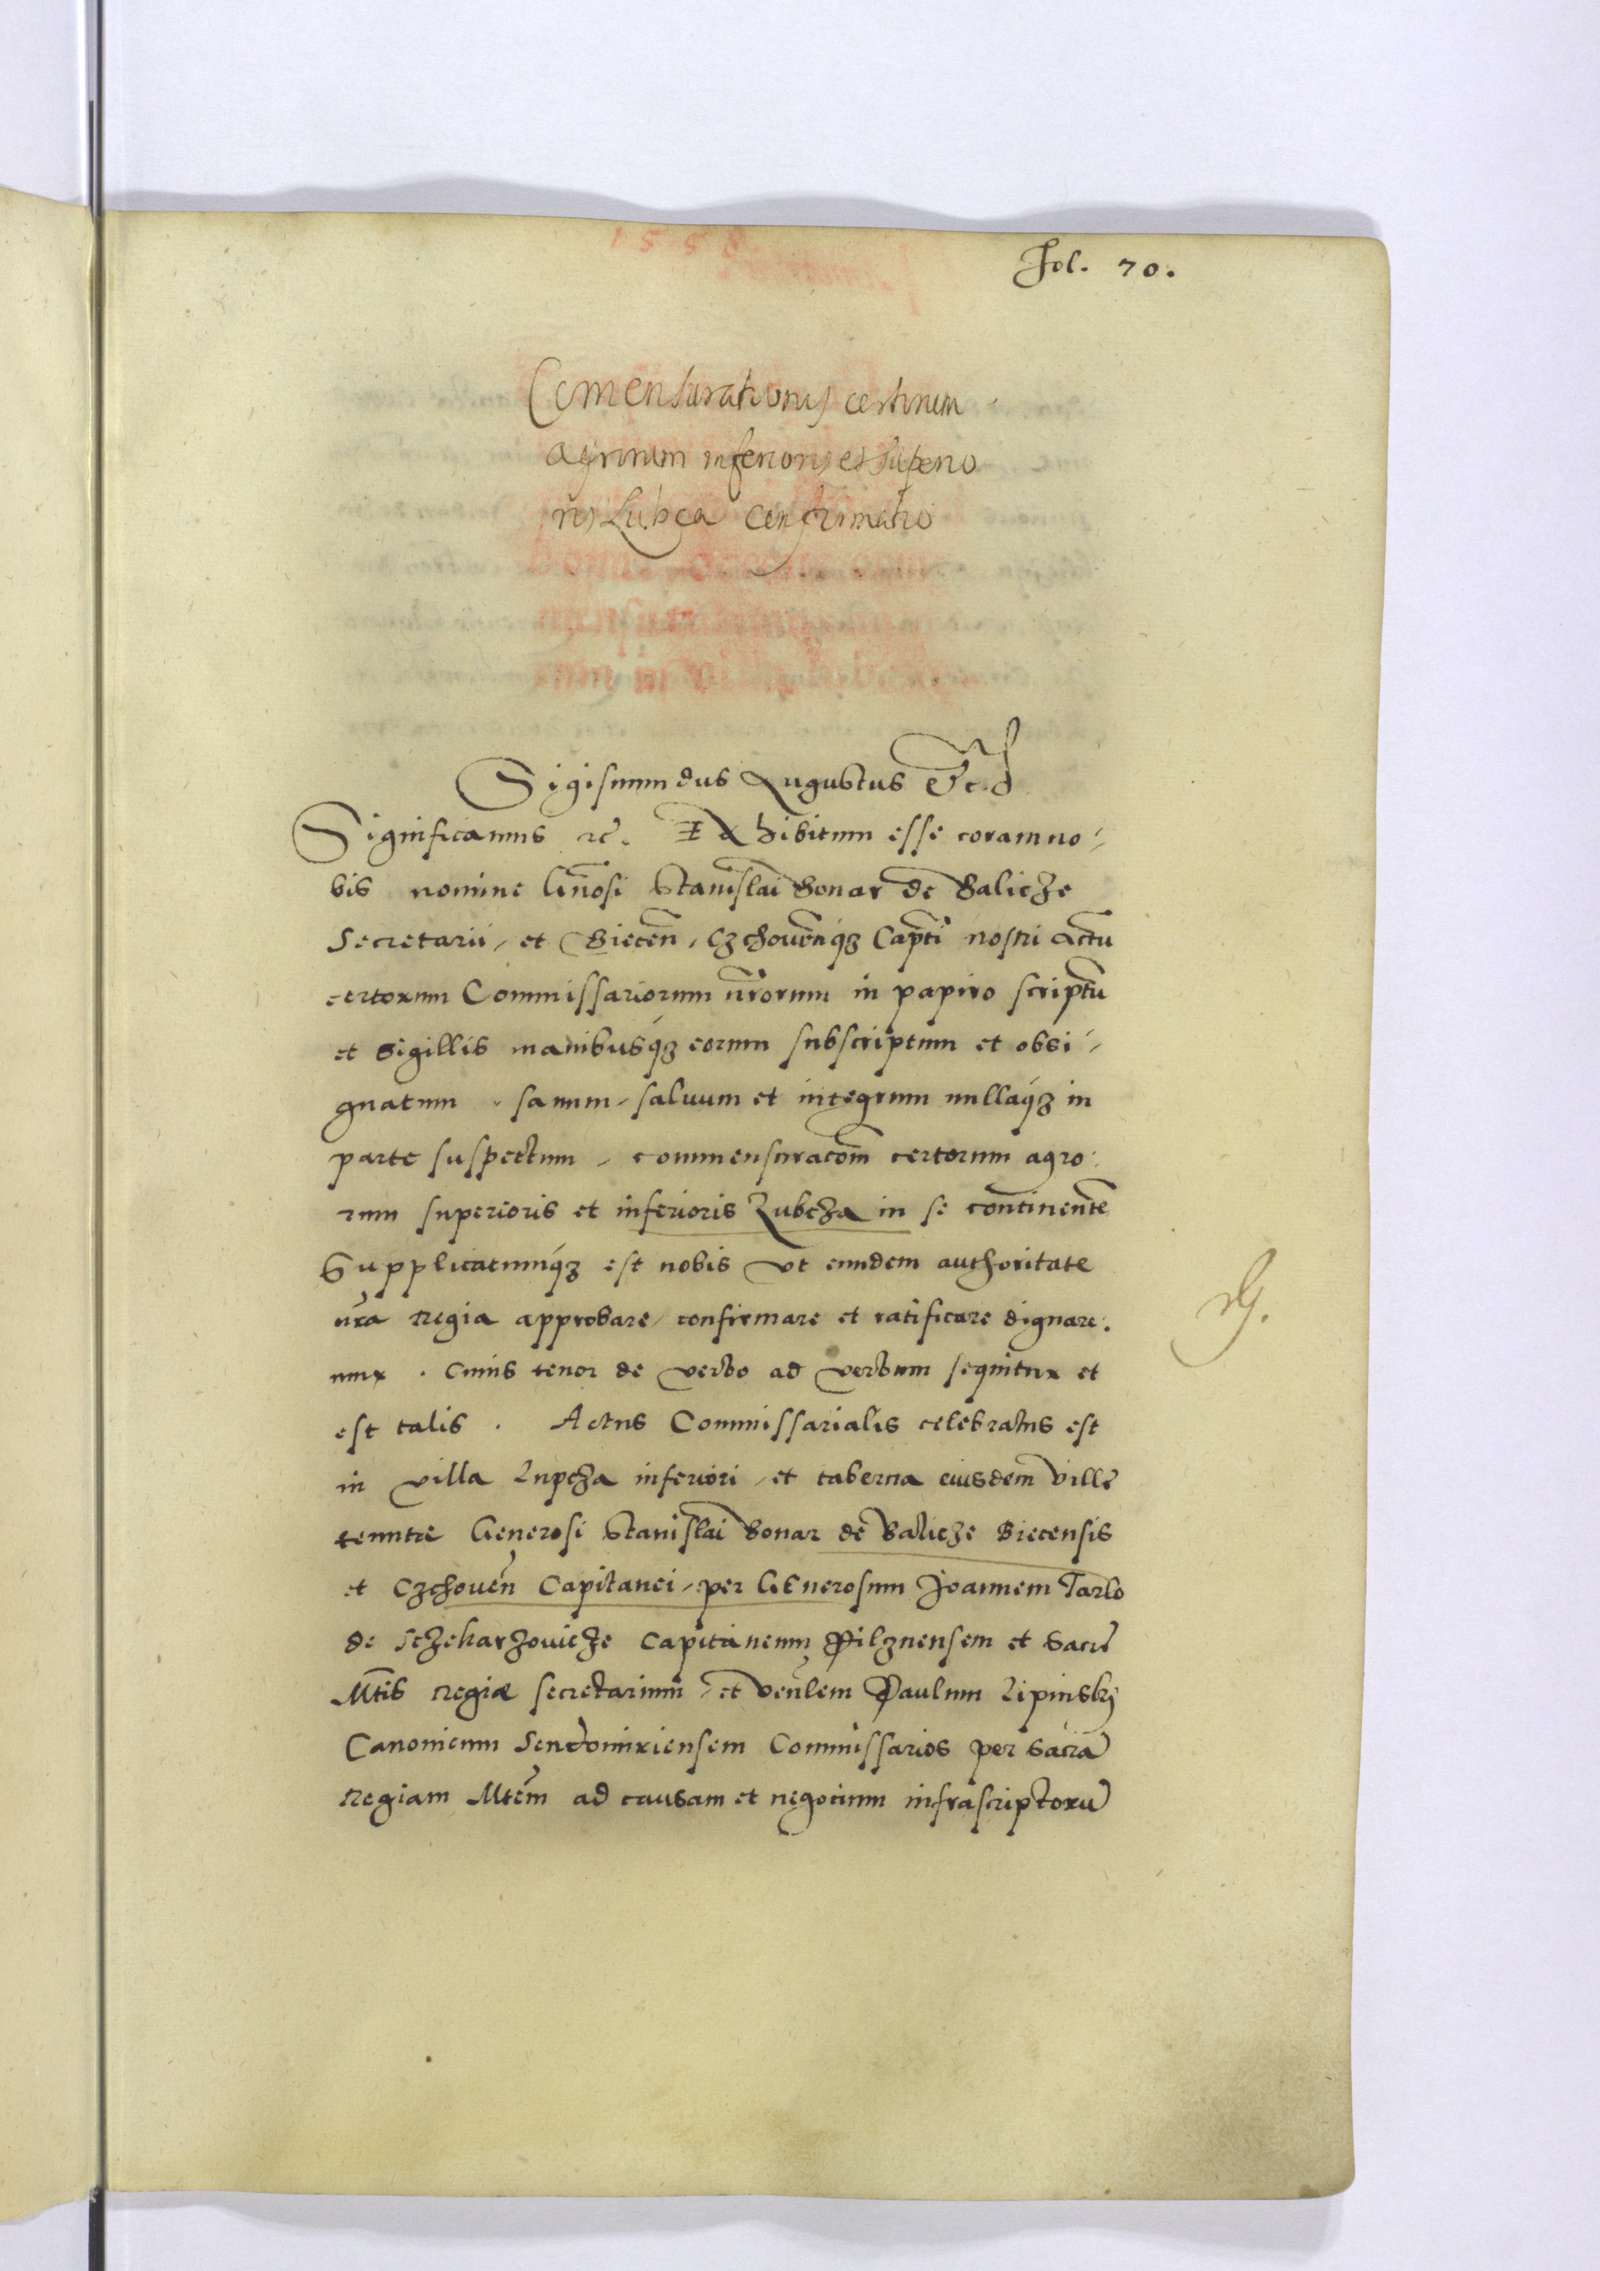 Fol. 70.
Comensurationis certorum
agrorum inferioris et superio
ris Lubcza confirmatio
Sigismundus Augustus Etc.
Significamus etc. Exhibitum esse coram no-
bis nomine Gnosi Stanislai Bonar de Balicze
Secretarii, et Biecen, Czchovenqз Capti nostri Actu
certorum Commissariorum nrorum in papiro scriptu
et Sigillis manibusqз eorum subscriptum et obsi-
gnatum, sanum, saluum et integrum nullaqз in
parte suspectum, commensuracom certorum agro-
rum superioris et inferioris Lubcza in se continente
Supplicatumqз est nobis vt eundem authoritate
nra Regia approbare, confirmare et ratificare dignare-
mur. Cuius tenor de verbo ad verbum sequitur et
est talis. Actus Commissarialis celebratus est
in villa Lupcza inferiori, et taberna eiusdem ville
tenutre Generosi Stanislai Bonar de Balicze Biecensis
et Czchouen Capitanei, per Generosum Joannem Tarlo
de Sczekarzovicze Capitaneum Pilznensem et Sacre
Mtis Regiæ secretarium, et Venlem Paulum Lipinskÿ
Canonicum Sendomiriensem Commissarios per Sacra
Regiam Mtem ad causam et negocium infrascriptoru